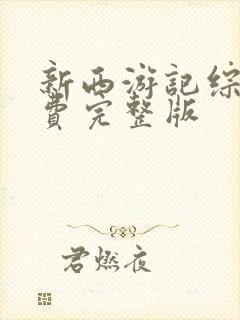 新西游記综
費完整版
君燃夜